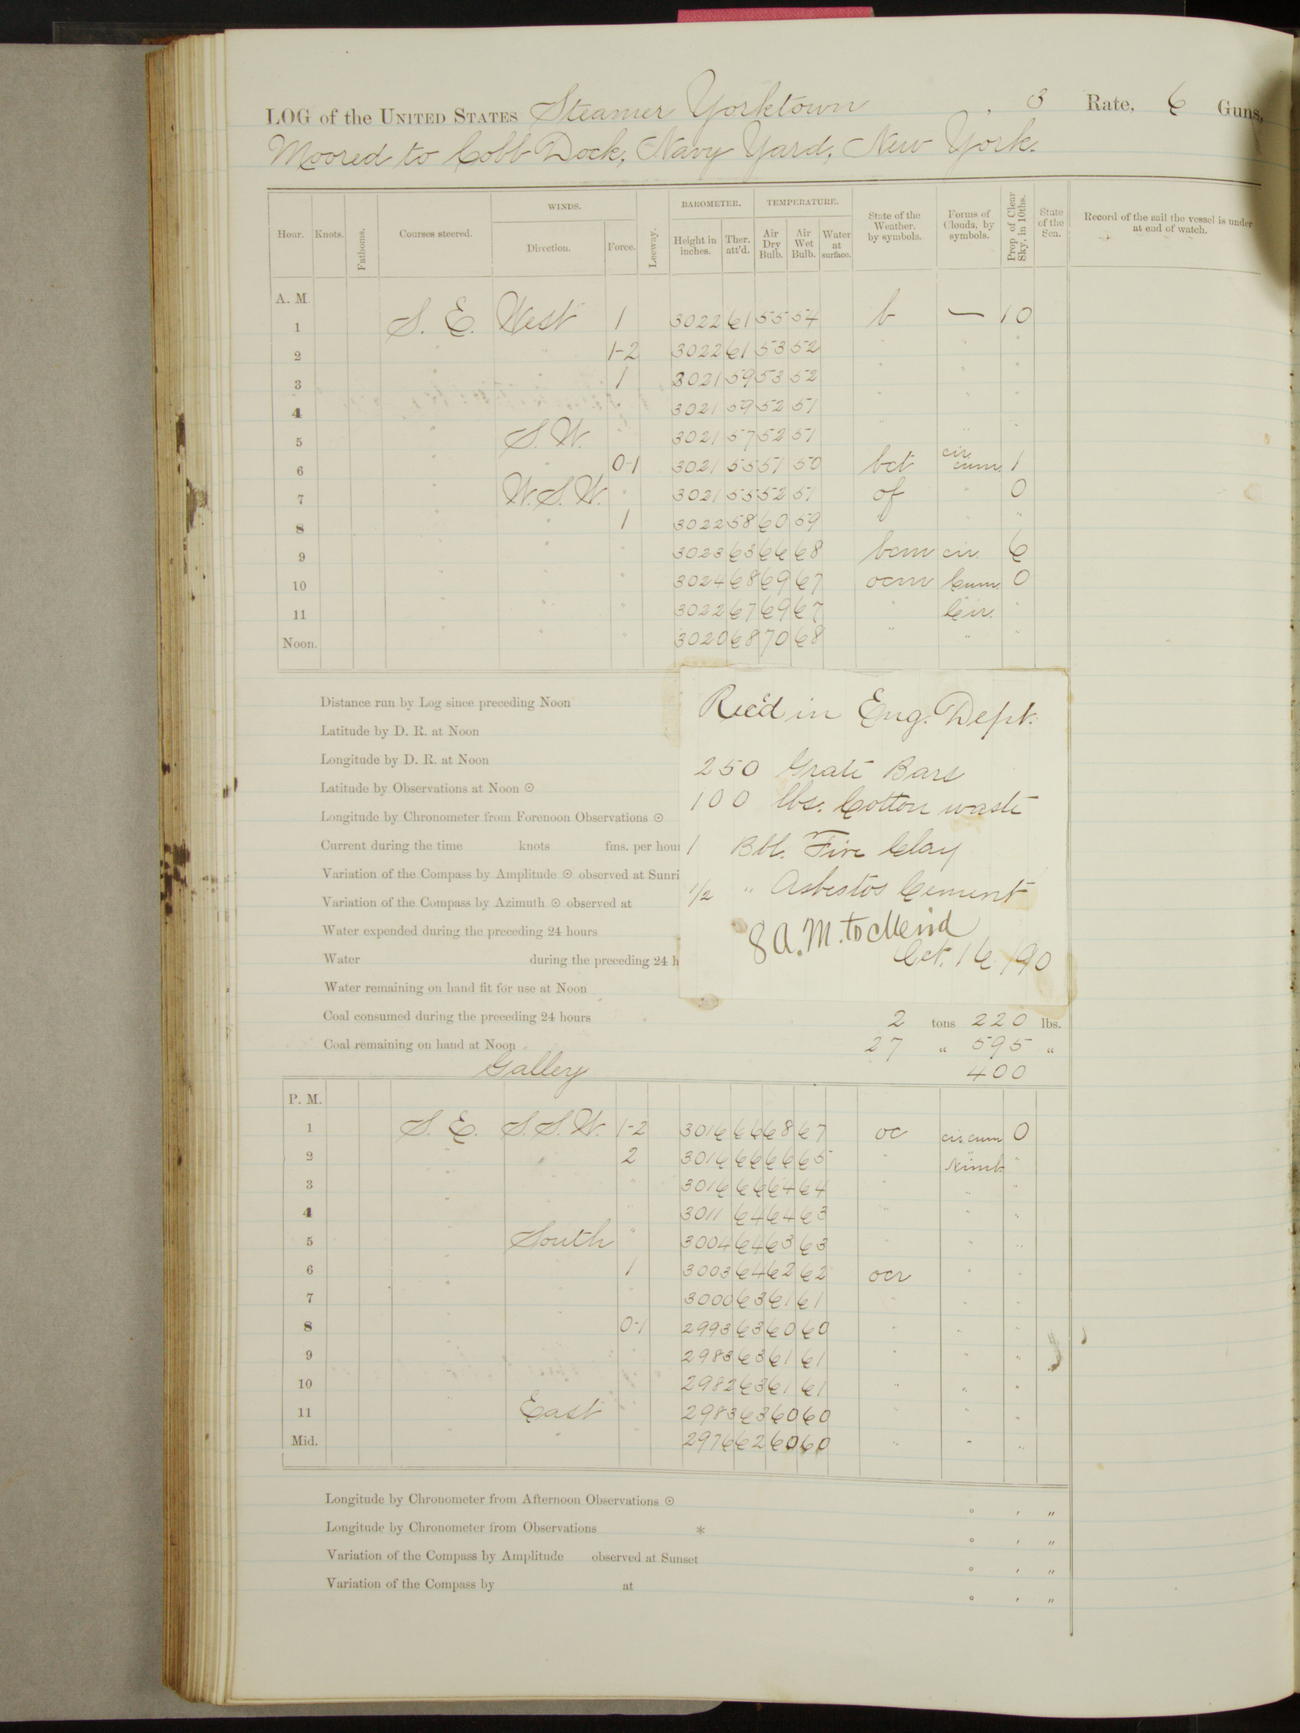 LOG of the UNITED STATES Steamer Yorktown . 3 Rate, 6 Guns,
Moored to Cobb Dock, Navy Yard, New York.
WINDS. BAROMETER. TEMPERATURE.
Hour. Knots. Fathoms. Courses steered. Direction. Force. Leeway. Height in inches. Ther. att'd. Air Dry Bulb. Air Wet Bulb. Water at surface. State of the Weather, by symbols. Forms of Clouds, by symbols. Prop. of Clear Sky, in 10ths. State of the Sea. Record of the sail the vessel is under at end of watch.
A. M.
1 S. E. West 1 3022 61 55 54 b — 10
2 " " 1-2 3022 61 53 52 " " "
3 " " 1 3021 59 53 52 " " "
4 " " " 3021 59 52 51 " " "
5 " S. W. 3021 57 52 51 " " "
6 " " 0-1 3021 55 51 50 bct cir. cum. 1
7 " W. S. W. " 3021 55 52 51 of " 0
8 " " 1 3022 58 60 59 " " "
9 " " " 3023 63 66 68 bcm cir. 6
10 " " " 3024 68 69 67 ocm Cum. 0
11 " " " 3022 67 69 67 " Cir. "
Noon. " " " 3020 68 70 68 " " "
Distance run by Log since preceding Noon
Latitude by D. R. at Noon
Longitude by D. R. at Noon
Latitude by Observations at Noon ☉
Longitude by Chronometer from Forenoon Observations ☉
Current during the time knots fms. per hour
Variation of the Compass by Amplitude ☉ observed at Sunri
Variation of the Compass by Azimuth ☉ observed at
Water expended during the preceding 24 hours
Water during the preceding 24 h
Water remaining on hand fit for use at Noon
Rec'd in Eng. Dept.
250 Grate Bars
100 lbs. Cotton waste
1 Bbl. Fire Clay
1/2 " Asbestos Cement
8 A. M. to Merid
Oct. 16 /90
Coal consumed during the preceding 24 hours 2 tons 220 lbs.
Coal remaining on hand at Noon 27 " 595 "
Galley 400
P. M.
1 S. E. S. S. W. 1-2 3016 66 68 67 oc cir cum 0
2 " " 2 3016 66 66 65 " Nimb. "
3 " " " 3016 66 64 64 " " "
4 " " " 3011 64 64 63 " " "
5 " South " 3004 64 63 63 " " "
6 " " 1 3003 64 62 62 ocr " "
7 " " " 3000 63 61 61 " " "
8 " " 0-1 2993 63 60 60 " " "
9 " " " 2983 63 61 61 " " "
10 " " " 2982 63 61 61 " " "
11 " East " 2983 63 60 60 " " "
Mid. " " " 2976 62 60 60 " " "
Longitude by Chronometer from Afternoon Observations ☉ ° ' "
Longitude by Chronometer from Observations * ° ' "
Variation of the Compass by Amplitude observed at Sunset ° ' "
Variation of the Compass by at ° ' "